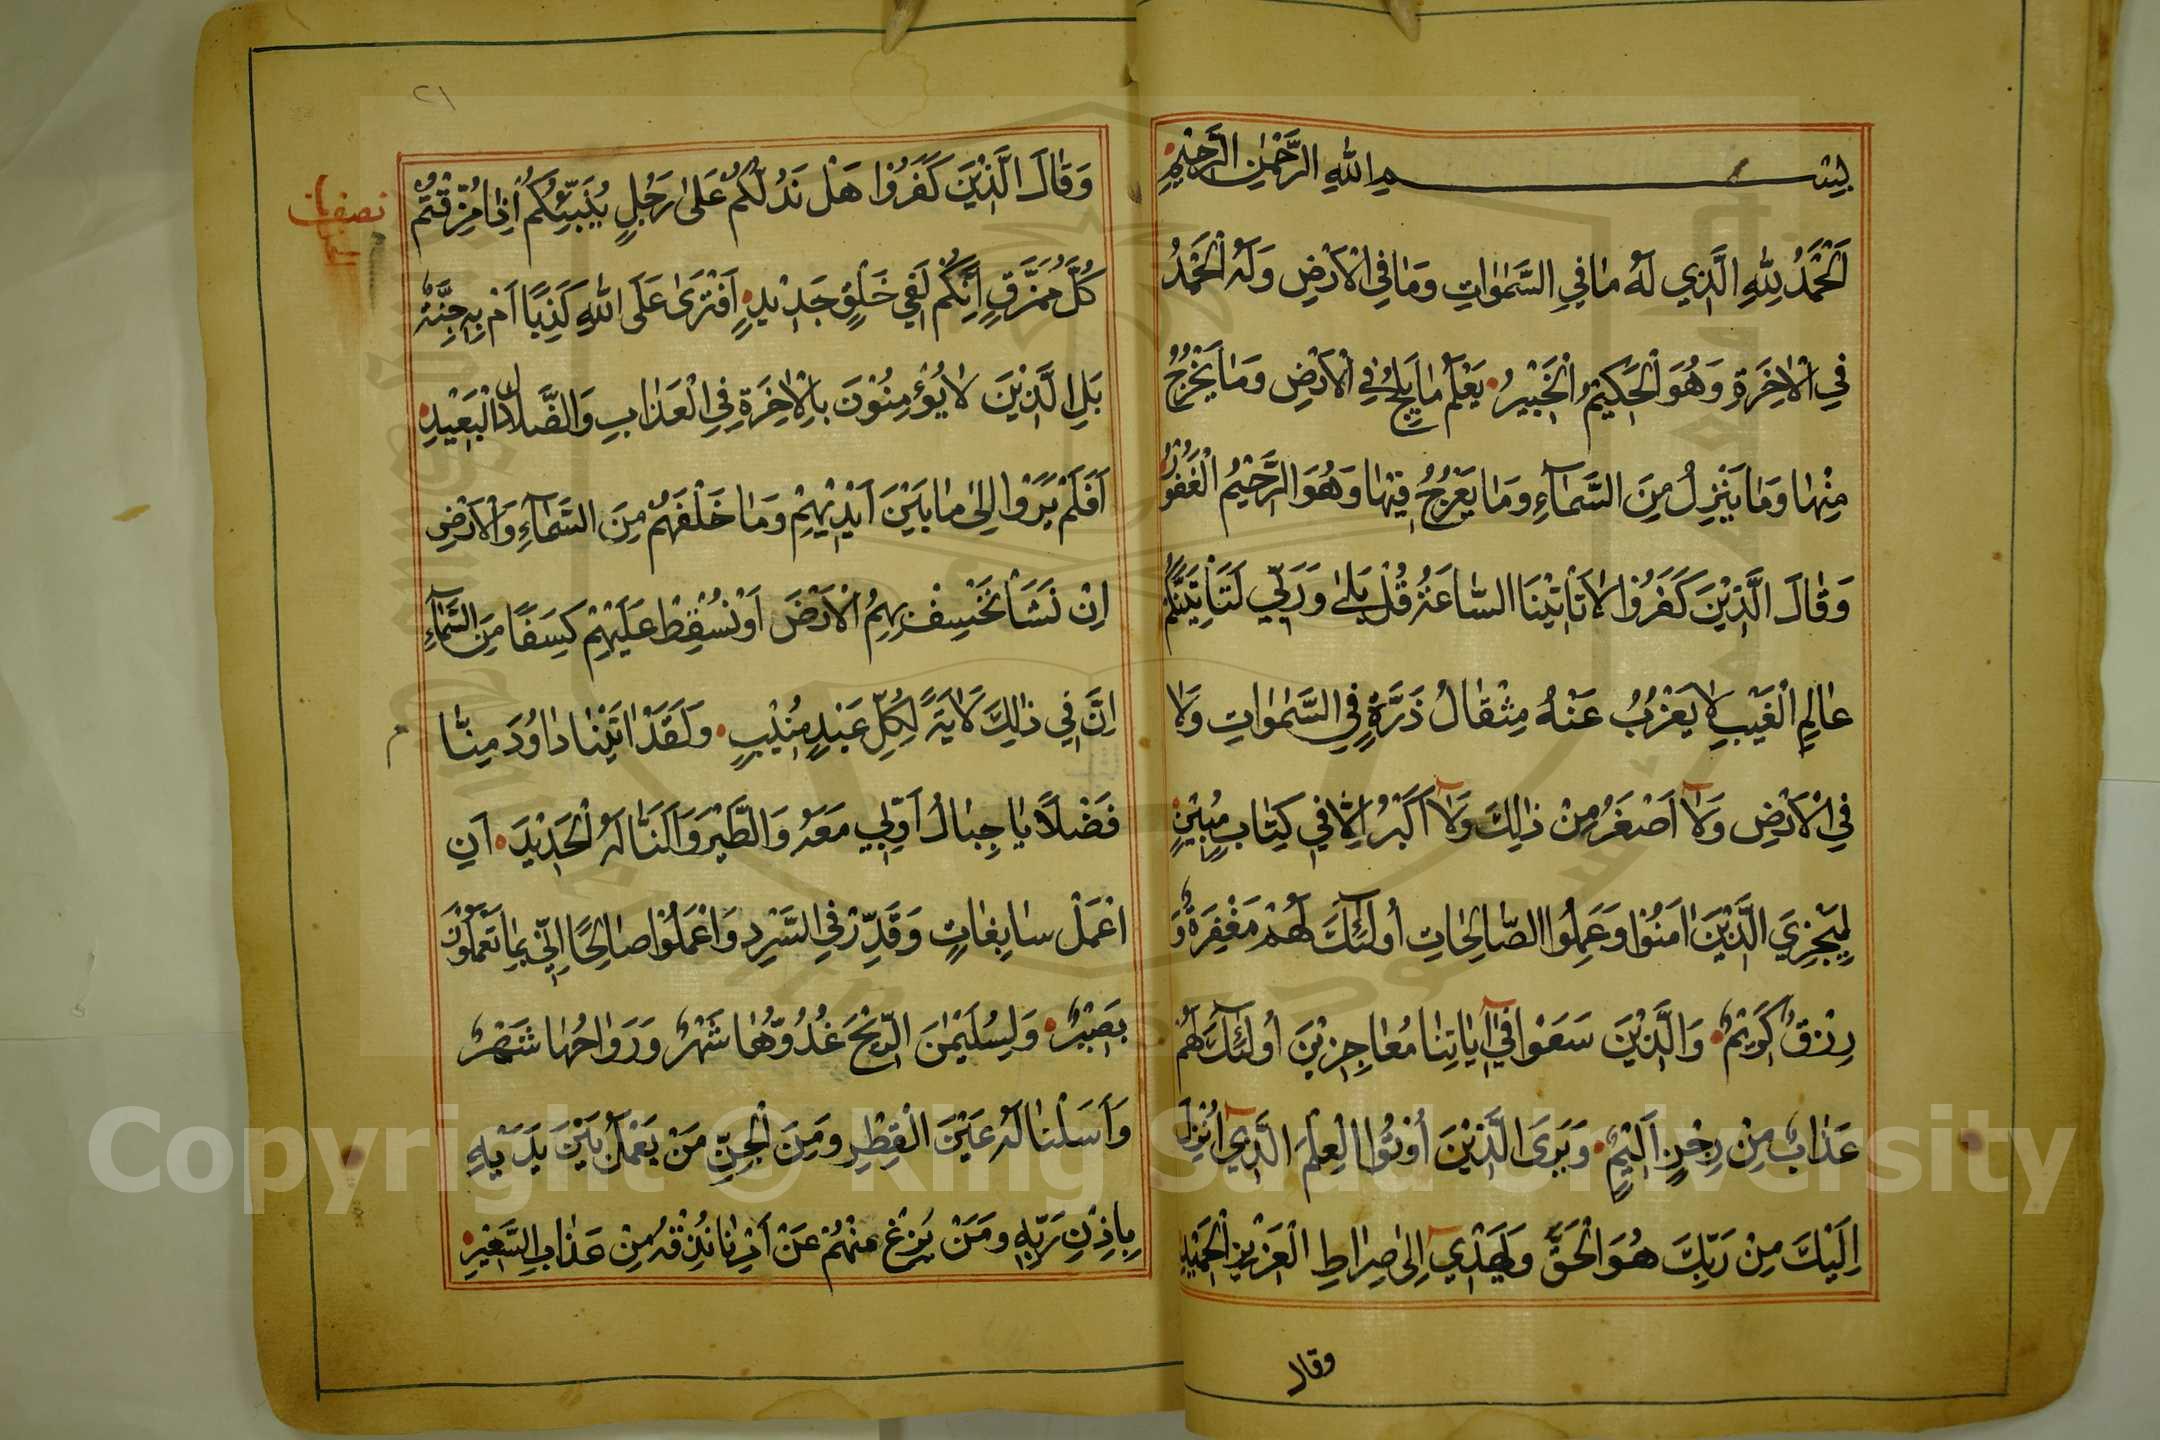 بِسْمِ اللهِ الرَّحْمٰنِ الرَّحِيْمِ
اَلْحَمْدُ لِلّٰهِ الَّذِي لَهُ مَا فِي السَّمٰوَاتِ وَمَا فِي الْاَرْضِ وَلَهُ الْحَمْدُ
فِي الْاٰخِرَةِ وَهُوَ الْحَكِيْمُ الْخَبِيْرُ يَعْلَمُ مَا يَلِجُ فِي الْاَرْضِ وَمَا يَخْرُجُ
مِنْهَا وَمَا يَنْزِلُ مِنَ السَّمَآءِ وَمَا يَعْرُجُ فِيْهَا وَهُوَ الرَّحْيْمُ الْغَفُوْرُ
وَقَالَ الَّذِيْنَ كَفَرُوْا لَا تَأْتِيْنَا السَّاعَةُ قُلْ بَلٰى وَرَبِّي لَتَأْتِيَنَّكُمْ
عَالِمِ الْغَيْبِ لَا يَعْزُبُ عَنْهُ مِثْقَالُ ذَرَّةٍ فِي السَّمٰوَاتِ وَلَا
فِي الْاَرْضِ وَلَآ اَصْغَرُ مِنْ ذٰلِكَ وَلَآ اَكْبَرُ اِلَّا فِي كِتَابٍ مُبِيْنٍ
لِيَجْزِيَ الَّذِيْنَ اٰمَنُوْا وَعَمِلُوا الصَّالِحَاتِ اُولٰٓئِكَ لَهُمْ مَغْفِرَةٌ وَ
رِزْقٌ كَرِيْمٌ وَالَّذِيْنَ سَعَوْا فِيٓ اٰيَاتِنَا مُعَاجِزِيْنَ اُولٰٓئِكَ لَهُمْ
عَذَابٌ مِنْ رِجْزٍ اَلِيْمٍ وَيَرَى الَّذِيْنَ اُوْتُوا الْعِلْمَ الَّذِيٓ اُنْزِلَ
اِلَيْكَ مِنْ رَبِّكَ هُوَ الْحَقَّ وَيَهْدِيٓ اِلٰى صِرَاطِ الْعَزِيْزِ الْحَمِيْدِ
وقال
٢١
وَقَالَ الَّذِيْنَ كَفَرُوْا هَلْ نَدُلُّكُمْ عَلٰى رَجُلٍ يُنَبِّئُكُمْ اِذَا مُزِّقْتُمْ
كُلَّ مُمَزَّقٍ اِنَّكُمْ لَفِي خَلْقٍ جَدِيْدٍ اَفْتَرٰى عَلَى اللهِ كَذِبًا اَمْ بِهِ جِنَّةٌ
بَلِ الَّذِيْنَ لَا يُؤْمِنُوْنَ بِالْاٰخِرَةِ فِي الْعَذَابِ وَالضَّلَالِ الْبَعِيْدِ
اَفَلَمْ يَرَوْا اِلٰى مَا بَيْنَ اَيْدِيْهِمْ وَمَا خَلْفَهُمْ مِنَ السَّمَآءِ وَالْاَرْضِ
اِنْ نَشَأْ نَخْسِفْ بِهِمُ الْاَرْضَ اَوْ نُسْقِطْ عَلَيْهِمْ كِسَفًا مِنَ السَّمَآءِ
اِنَّ فِي ذٰلِكَ لَاٰيَةً لِكُلِّ عَبْدٍ مُنِيْبٍ وَلَقَدْ اٰتَيْنَا دَاوُدَ مِنَّا
فَضْلًا يَا جِبَالُ اَوِّبِي مَعَهُ وَالطَّيْرَ وَاَلَنَّا لَهُ الْحَدِيْدَ اَنِ
اعْمَلْ سَابِغَاتٍ وَقَدِّرْ فِي السَّرْدِ وَاعْمَلُوْا صَالِحًا اِنِّي بِمَا تَعْمَلُوْنَ
بَصِيْرٌ وَلِسُلَيْمٰنَ الرِّيْحَ غُدُوُّهَا شَهْرٌ وَرَوَاحُهَا شَهْرٌ
وَاَسَلْنَا لَهُ عَيْنَ الْقِطْرِ وَمِنَ الْجِنِّ مَنْ يَعْمَلُ بَيْنَ يَدَيْهِ
بِاِذْنِ رَبِّهِ وَمَنْ يَزِغْ مِنْهُمْ عَنْ اَمْرِنَا نُذِقْهُ مِنْ عَذَابِ السَّعِيْرِ
Copyright © King Saud University